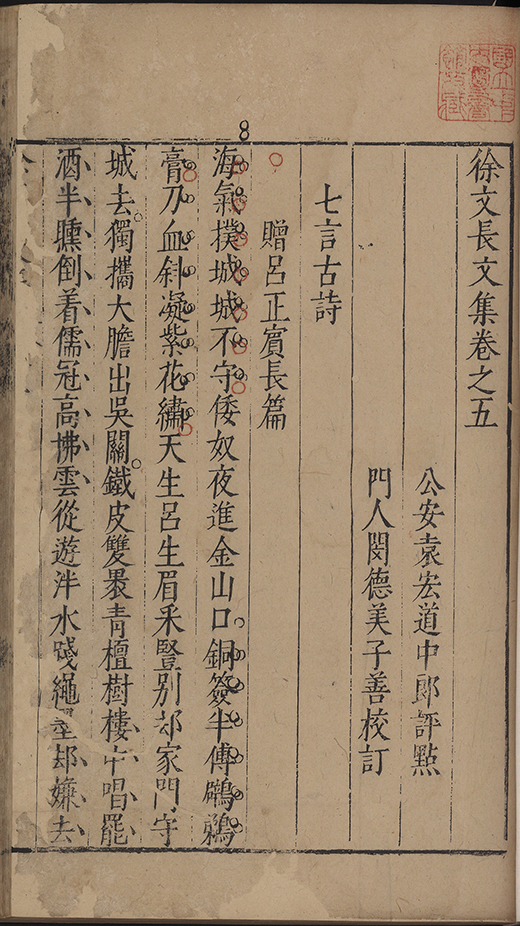 8
徐文長文集卷之五
公安袁宏道中郎評點
門人閔德美子善校訂
七言古詩
贈呂正賓長篇
海氣撲城城不守倭奴夜進金山口銅簽半傅鸊鵜
膏刀血斜凝紫花繡天生呂生眉采豎別却家門守
城去獨攜大膽出吳關鐵皮雙裹青檀樹樓中唱罷
酒半醺倒着儒冠高拂雲從遊泮水踐繩墨却嫌去